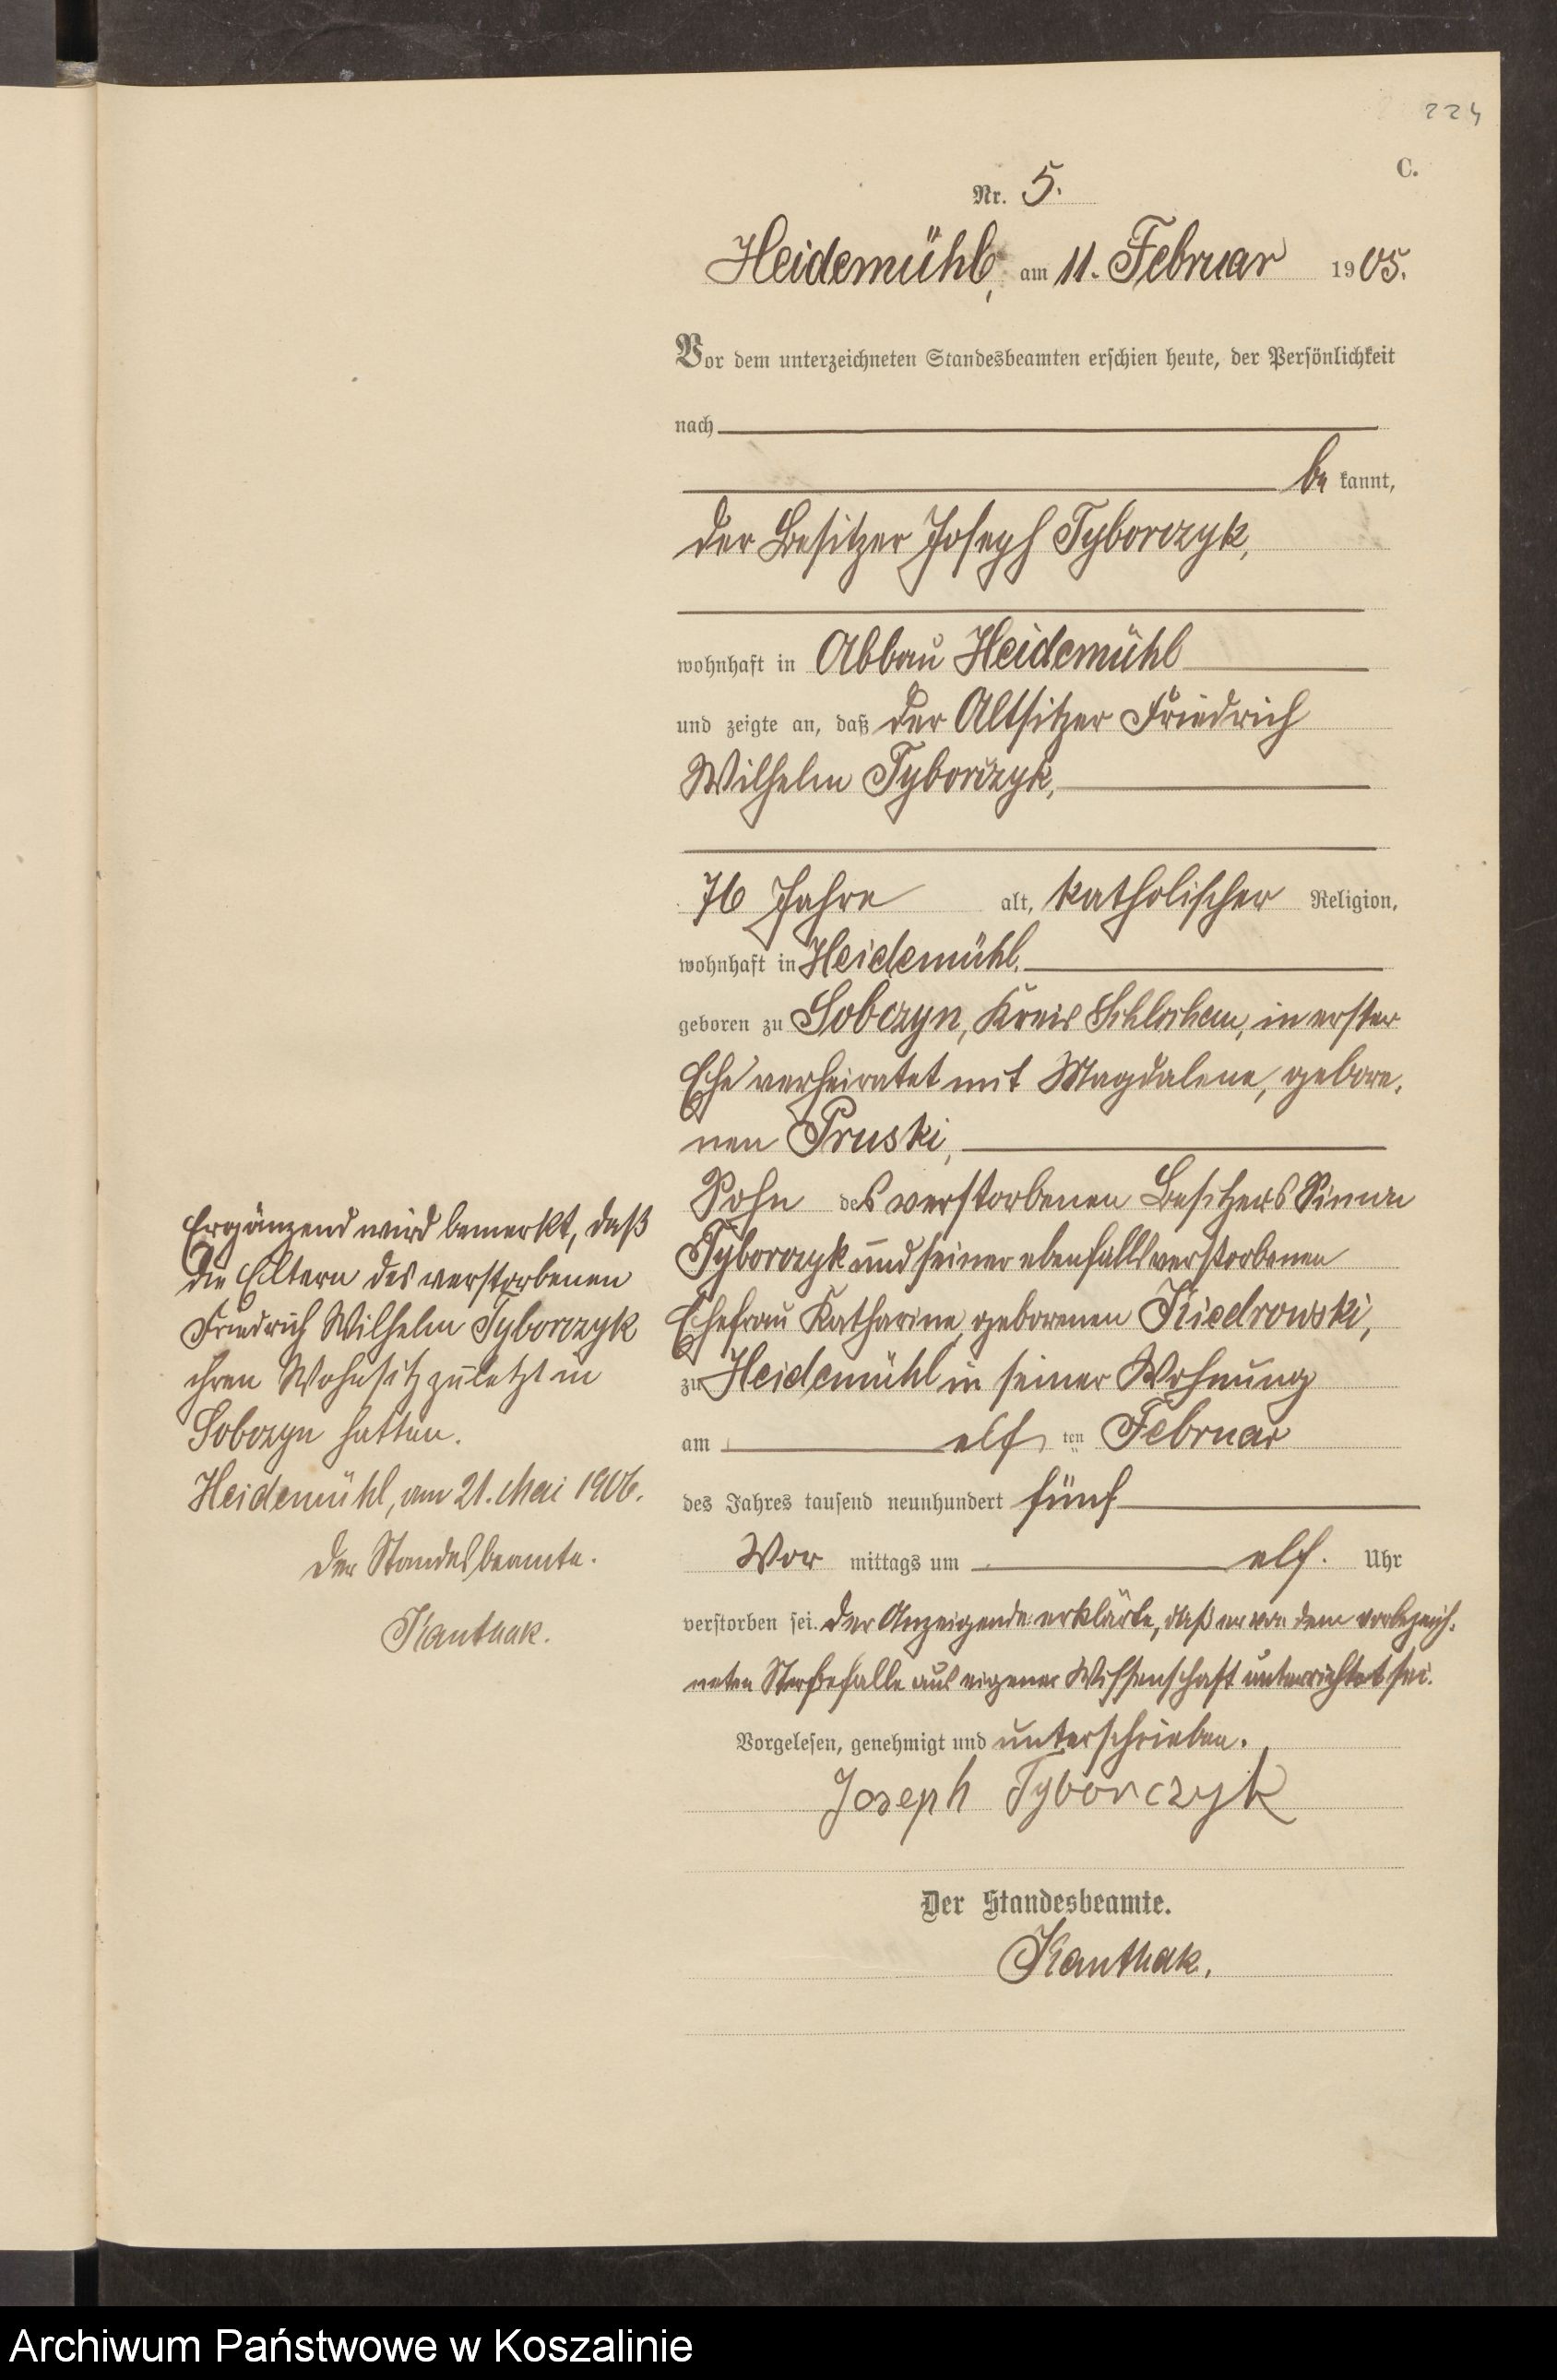 224
C.
Nr. 5.
Heidemühl, am 11. Februar 1905.
Vor dem unterzeichneten Standesbeamten erschien heute, der Persönlichkeit
nach
be kannt,
der Besitzer Joseph Tyborczyk,
wohnhaft in Abbau Heidemühl
und zeigte an, daß der Altsitzer Friedrich
Wilhelm Tyborczyk,
76 Jahre alt, katholischer Religion,
wohnhaft in Heidemühl,
geboren zu Sobczyn, Kreis Schlochau, in erster
Ehe verheiratet mit Magdalene, gebore-
nen Pruski,
Sohn des verstorbenen Besitzers Simon
Tyborczyk und seiner ebenfalls verstorbenen
Ehefrau Katharine, geborenen Kiedrowski,
zu Heidemühl in seiner Wohnung
am elf ten Februar
des Jahres tausend neunhundert fünf
Vor mittags um elf. Uhr
verstorben sei. Der Anzeigende erklärte, daß er von dem vorbezeich-
neten Sterbefalle aus eigener Wissenschaft unterrichtet sei.
Vorgelesen, genehmigt und unterschrieben.
Joseph Tyborczyk
Der Standesbeamte.
Kanthak.
Ergänzend wird bemerkt, daß
die Eltern des verstorbenen
Friedrich Wilhelm Tyborczyk
ihren Wohnsitz zuletzt in
Sobczyn hatten.
Heidemühl, am 21. Mai 1906.
Der Standesbeamte.
Kanthak.
Archiwum Państwowe w Koszalinie